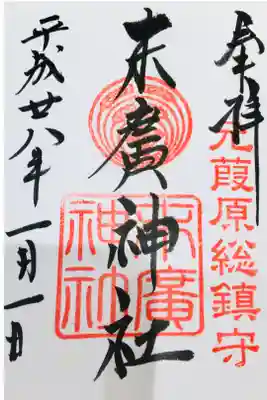 奉拝
元葭原総鎮守
末廣神社
末廣神社
平成廿八年一月一日